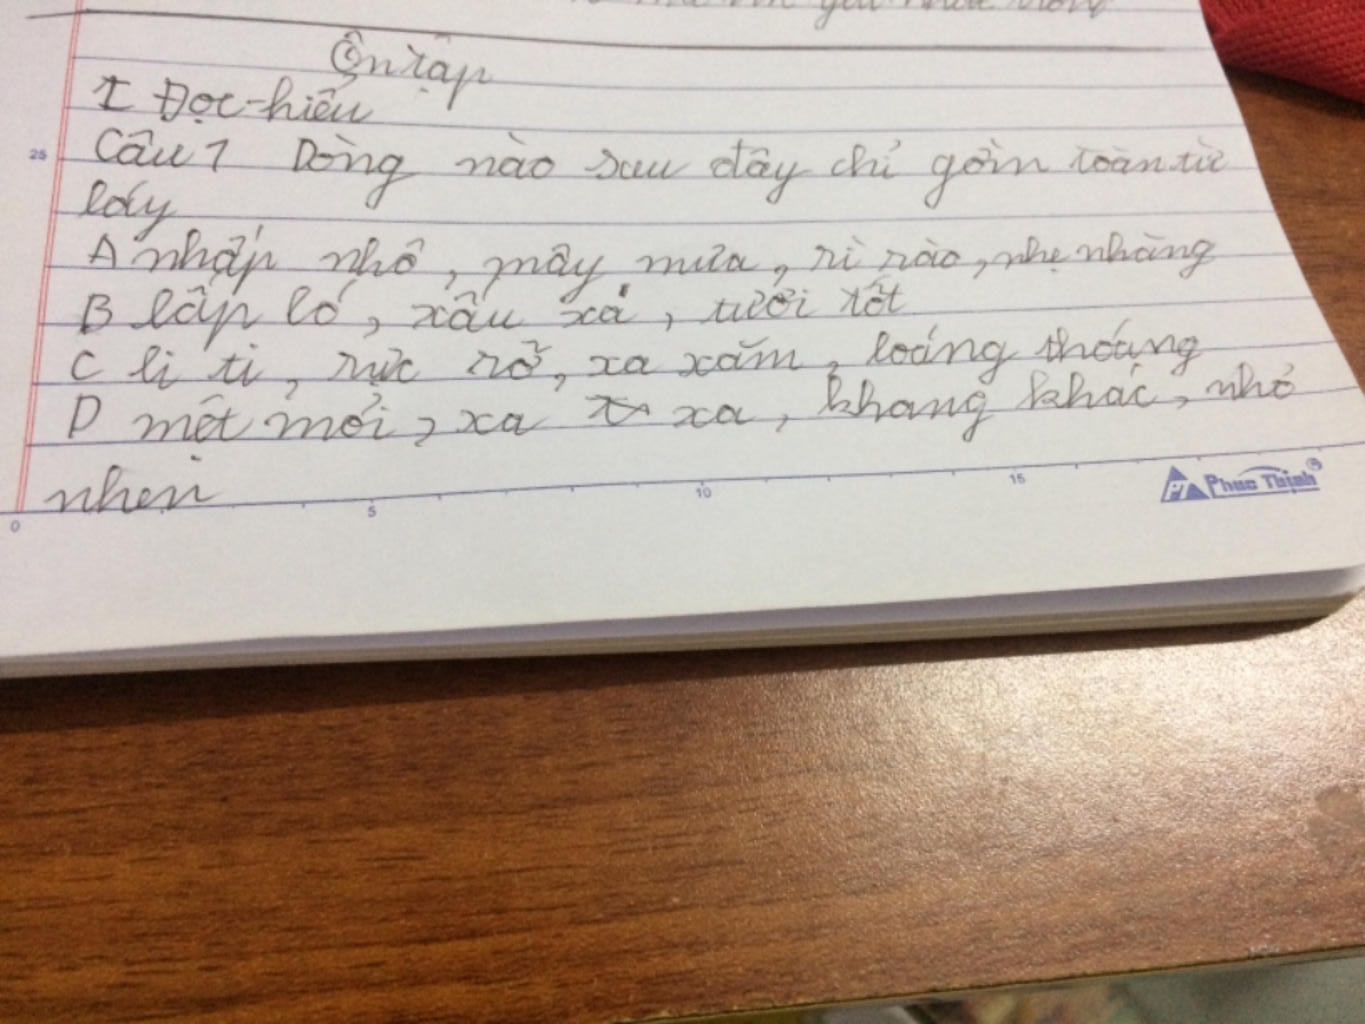 Ôn tập
I Đọc-hiểu
Câu 1 Dòng nào sau đây chỉ gồm toàn từ
láy
A nhấp nhô, mây mưa, rì rào, nhẹ nhàng
B lấp ló, xấu xả, tươi tốt
C li ti, rực rỡ, xa xăm, loáng thoáng
D mệt mỏi, xa xa, khang khác, nhỏ
nhẹn
25
0 5 10 15
PT Phuc Thinh®